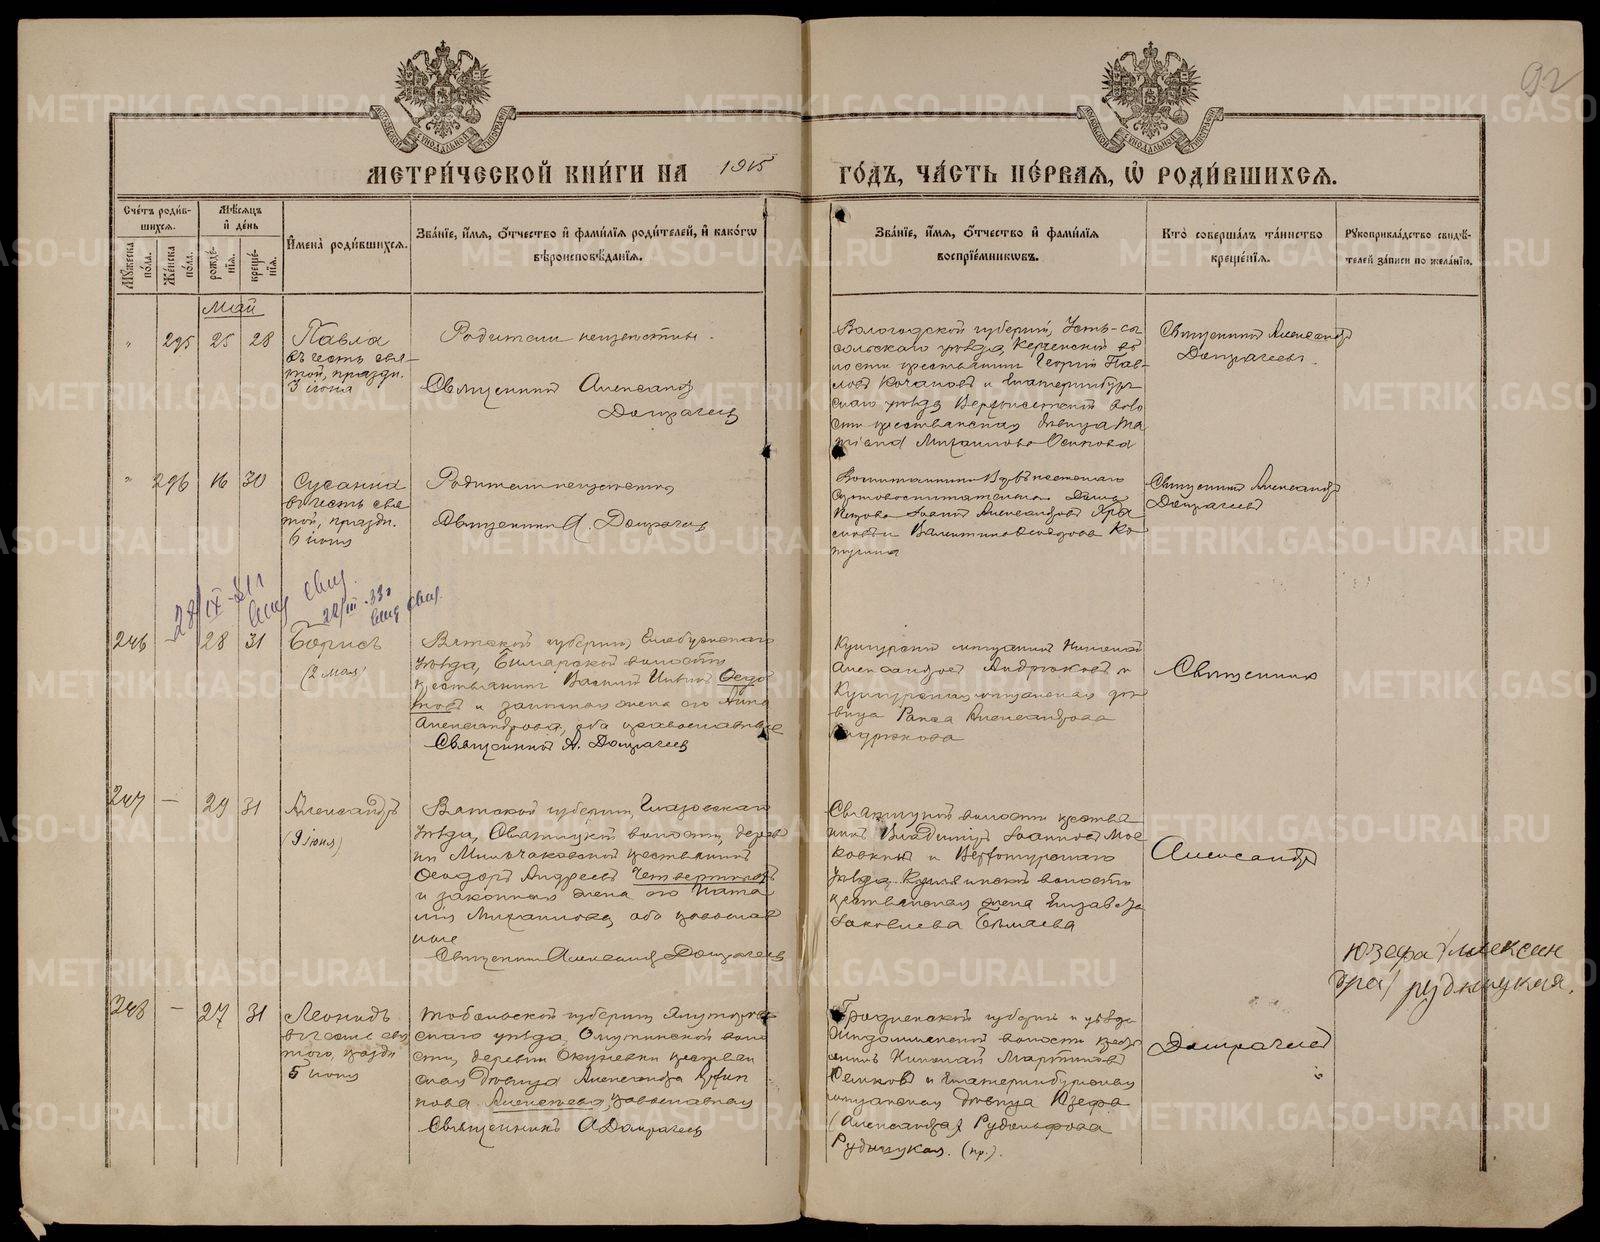 92
МЕТРИ́ЧЕСКОЙ КНИ́ГИ НА 1915 ГО́ДЪ, ЧА́СТЬ ПЕ́РВАЯ, Ѽ РОДИ́ВШИХСЯ.
Сче́тъ роди́в-
шихся.
Мꙋ́жеска по́ла.
Же́нска по́ла.
Мѣ́сяцъ
и҆ де́нь
рожде́-
нїя.
креще́-
нїя.
И҆мена̀ роди́вшихся.
Зва́нїе, и҆́мя, ѻ҆́тчество и҆ фами́лїя роди́телей, и҆ како́гѡ
вѣроисповѣ́данїя.
Зва́нїе, и҆́мя, ѻ҆́тчество и҆ фами́лїя
воспрїе́мникѡвъ.
Кто̀ соверша́лъ та́инство
креще́нїя.
Рꙋкоприкла́дство свидѣ́-
телей за́писи по жела́нїю.
Май
" 295 25 28
Павла
въ честь свя-
той, праздн.
3 іюня
Родители неизвѣстны.
Священникъ Александръ
Домрачевъ
Вологодской губерніи, Усть-сы
сольскаго уѣзда, Керчемской во
лости крестьянинъ Георгій Пав-
ловъ Кочановъ и Екатеринбург
скаго уѣзда Верхъисетской воло
сти крестьянская дѣвица Ма
Михаилова Осипова
Священникъ Александръ
Домрачевъ.
" 296 16 30
Сусанна
въ честь свя
той, праздн.
6 іюня
Родители неизвѣстны
Священникъ А. Домрачевъ
Іоаннъ Александровъ
Валентина
Священникъ Александръ
Домрачевъ
28/IX
22/III-33г
246 28 31
Борисъ
(2 мая)
Вятской губерніи, Елабужскаго
уѣзда, волости
крестьянинъ Василій Ѳедо
товъ и законная жена его Анна
Александрова, оба православные
Священникъ А. Домрачевъ
Кунгурскій мѣщанинъ Николай
Александровъ Андрюковъ и
Кунгурская мѣщанская дѣ
вица Раиса Александрова
Андрюкова
Священникъ
247 — 29 31
Александръ
(9 іюня)
Вятской губерніи, Глазовскаго
уѣзда, Святицкой волости, дерев
ни Мильчаковской крестьянинъ
Ѳеодоръ Андреевъ Четвертковъ
и законная жена его Ната
лія Михаилова, оба православ
ные
Священникъ Александръ Домрачевъ
Святицкой волости крестья
нинъ Владиміръ Іоанновъ Мос
ковкинъ и Верхотурскаго
уѣзда волости
крестьянская жена Елизавета
Іаковлева Бѣляева
Александръ
248 — 27 31
Леонидъ
въ честь свя
того, праздн
5 іюня
Тобольской губерніи Ялуторов
скаго уѣзда, Омутинской воло
сти, деревни Окуневки крестьян
ская дѣвица Александра
Алексѣева, православная
Священникъ А Домрачевъ
Гродненской губерніи и уѣзда
волости крестья
нинъ Николай Мартиновъ
и Екатеринбургская
мѣщанская дѣвица Юзефа
(Александра) Рудольфова
Рудницкая. (пр.).
Домрачевъ
Юзефа (Алексан
дра) Рудницкая.
METRIKI.GASO-URAL.RU